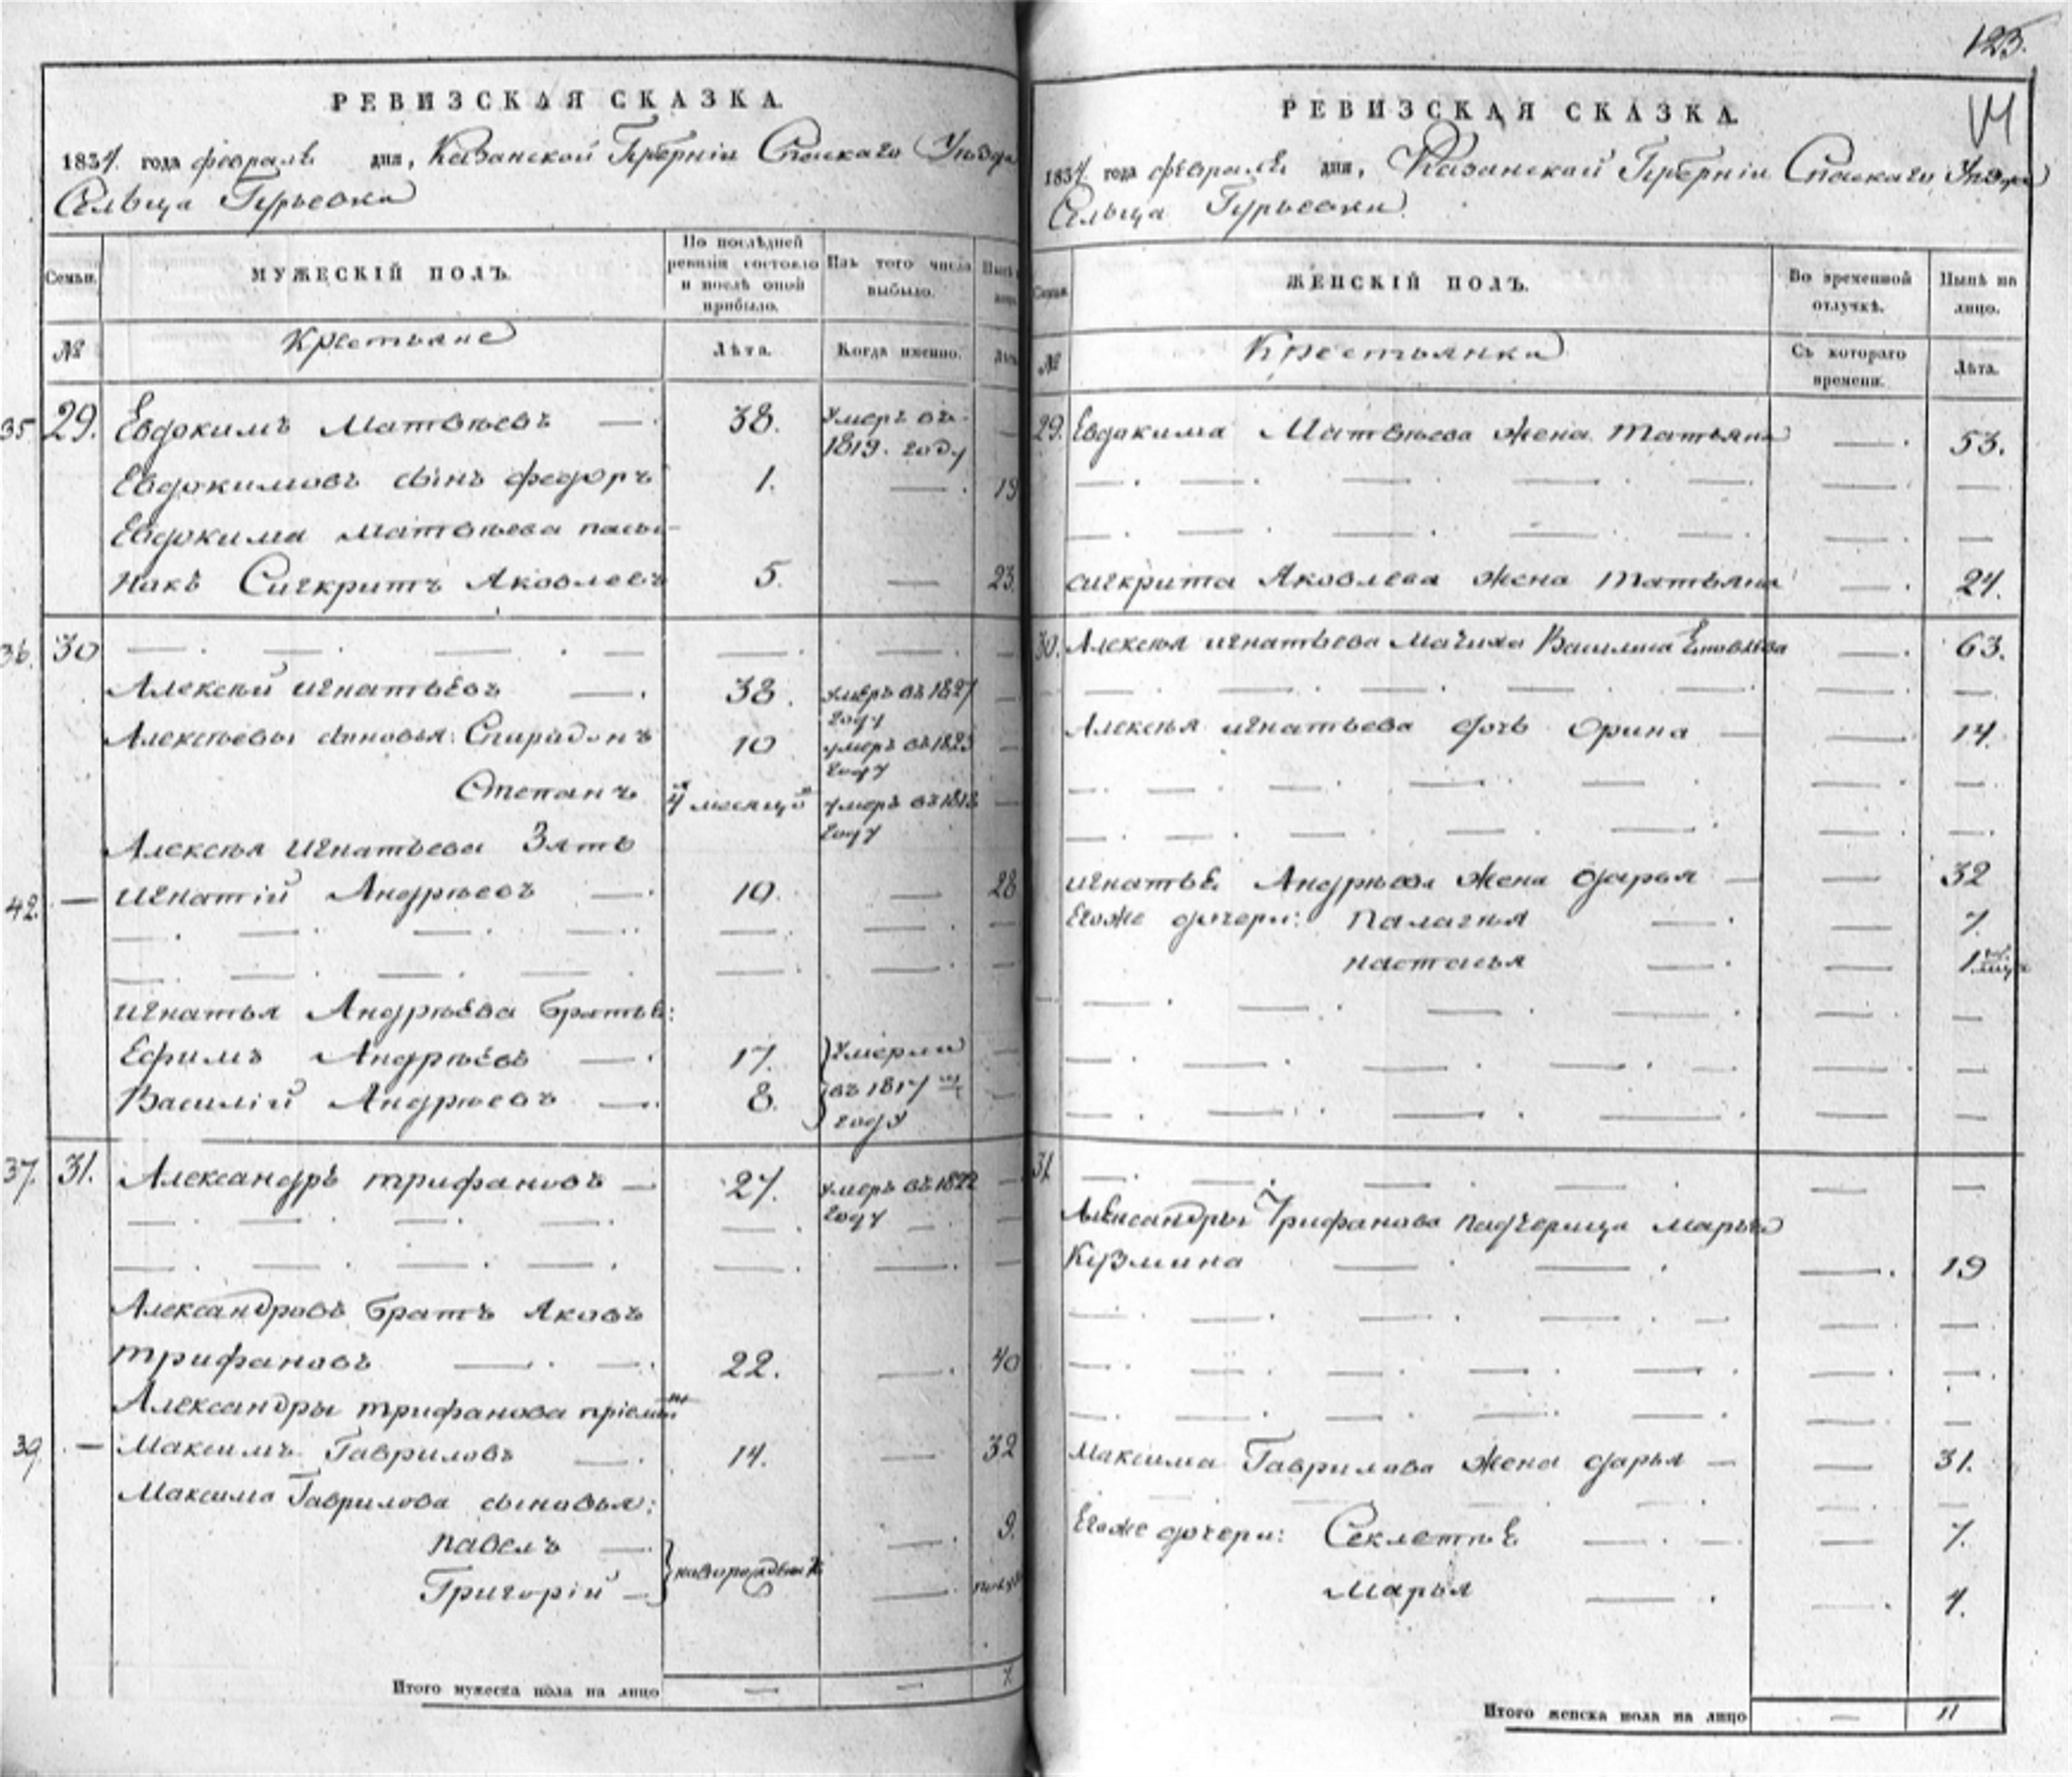 125.
РЕВИЗСКАЯ СКАЗКА.
1834 года февраля дня, Казанской Губерніи Спаскаго Уѣзда
Сельца Гурьевка
Семьи. МУЖЕСКІЙ ПОЛЪ. По послѣдней ревизіи состояло и послѣ оной прибыло. Изъ того числа выбыло. Нынѣ
№ Крестьяне Лѣта. Когда именно. Лѣта
35. 29. Евдокимъ Матвѣевъ — 38. Умеръ въ 1819. году —
Евдокимовъ сынъ федоръ 1. — 19
Евдокима Матвѣева пасы-
нокъ Сигкритъ Яковлевъ 5. — 23.
36. 30 — — — — — — —
Алексѣй игнатьевъ — 38. умеръ въ 1827 году —
Алексѣевы сыновья: Спиридонъ 10 умеръ въ 1823 году —
Степанъ 4 месяцо умеръ въ 1818 году —
Алексѣя Игнатьева Зять
42. — игнатій Андрѣевъ — 10. — 28
— — — — — — —
— — — — — — —
игнатья Андрѣева братья:
Ефимъ Андрѣевъ — 17. Умерли —
Василій Андрѣевъ — 8. въ 1817 м году —
37. 31. Александръ трифановъ — 27. умеръ въ 1822 году —
— — — — — — —
— — — — — — —
Александровъ братъ Яковъ
трифановъ — — 22. — 40
Александры трифанова пріемыш
39. — Максимъ Гавриловъ — 14. — 32
Максима Гаврилова сыновья:
павелъ — новорожденны — 9.
Григорій — — полуго
Итого мужеска пола на лицо — — 7.
РЕВИЗСКАЯ СКАЗКА.
1834 года февраля дня, Казанской Губерніи Спаскаго Уѣзда
Сельца Гурьевки
Семьи. ЖЕНСКІЙ ПОЛЪ. Во временной отлучкѣ. Нынѣ на лицо.
№ Крестьянки Съ котораго времени. Лѣта.
29. Евдокима Матвѣева жена Татьяна — 53.
— — — — — — —
— — — — — — —
сигкрита Яковлева жена Татьяна — 24.
30. Алексѣя игнатьева мачиха Василиса — 63.
— — — — — — —
Алексѣя игнатьева дочь Орина — — 14.
— — — — — — —
— — — — — — —
игнатья Андрѣева жена дарья — — 32
Егоже дочери: Палагѣя — — 7.
настасья — — 1
— — — — — —
— — — — — — —
— — — — — — —
31. — — — — — — —
Александры Трифанова падчерица марья
Кузмина — — — 19
— — — — — — —
— — — — — — —
— — — — — — —
Максима Гаврилова жена дарья — — 31.
— — — — — —
Егоже дочери: Секлетѣя — — — 7.
Марья — — 4.
Итого женска пола на лицо — 11